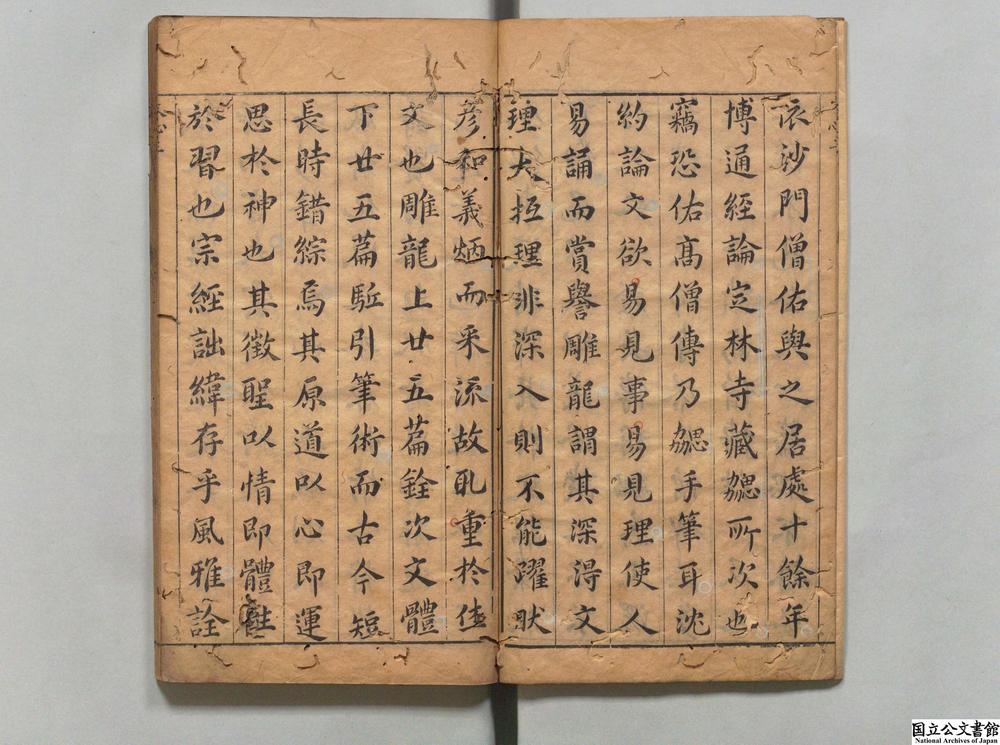 依沙門僧佑與之居處十餘年
博通經論定林寺藏勰所次也
竊恐佑高僧傳乃勰手筆耳沈
約論文欲易見事易見理使人
易誦而賞譽雕龍謂其深得文
理大抵理非深入則不能躍狀
彦和義炳而采流故取重於佳
文也雕龍上廿五篇銓次文體
下廿五篇駈引筆術而古今短
長時錯綜焉其原道以心即運
思於神也其徵聖以情即體性
於習也宗經詘緯存乎風雅詮
国立公文書館
National Archives of Japan